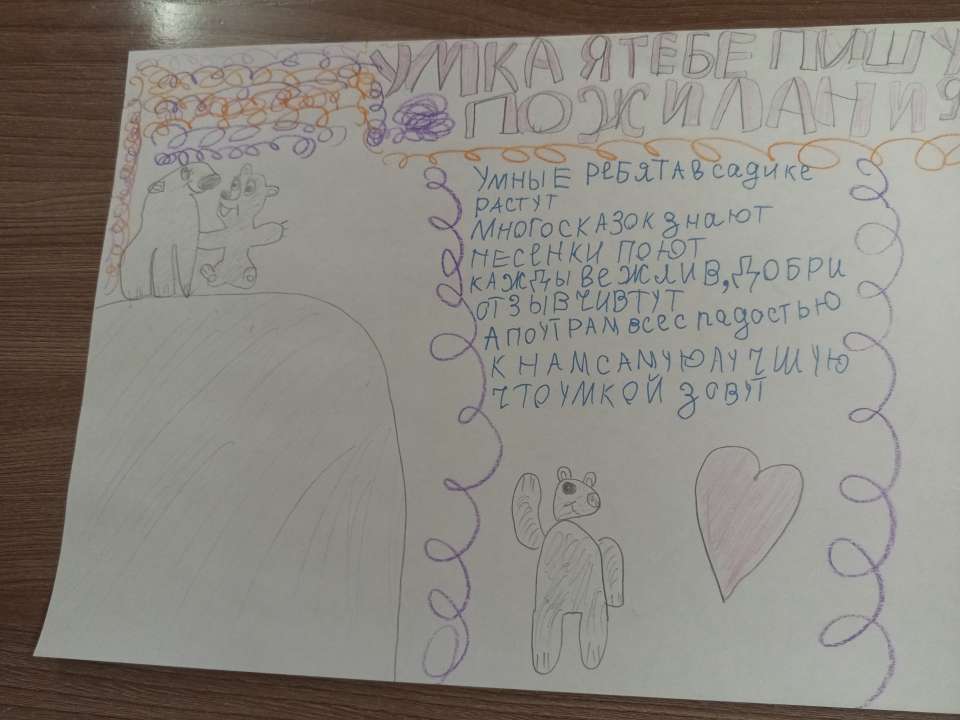 УМКА Я ТЕБЕ ПИШУ
ПОЖИЛАНИЯ
УМНЫЕ РЕБЯТА В садике
РАСТУТ
МНОГО СКАЗОК знают
ПЕСЕНКИ ПОЮТ
КАЖДЫ ВЕЖЛИВ, ДОБРИ
ОТЗЫВЧИВ ТУТ
А ПОУТРАМ всес радостью
К НАМ САМУЮ ЛУЧШУЮ
ЧТО УМКОЙ ЗОВУТ